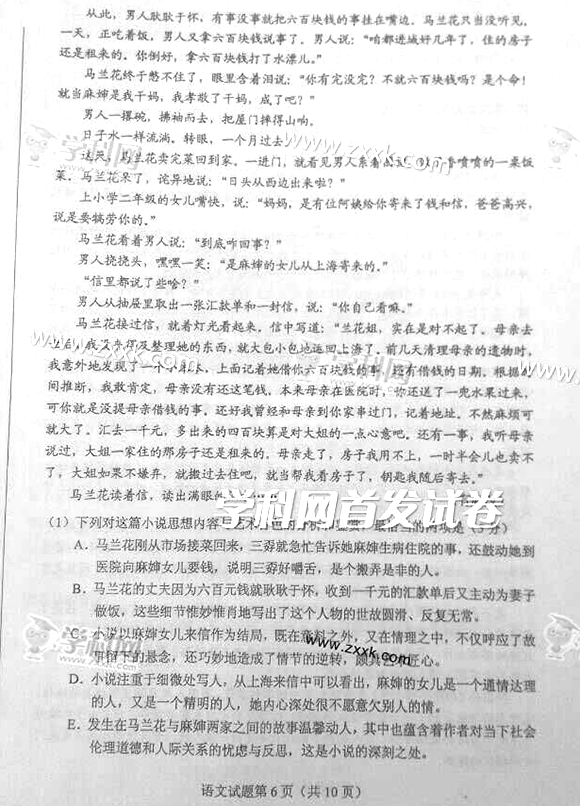 从此，男人耿耿于怀，有事没事就把六百块钱的事挂在嘴边。马兰花只当没听见。
一天，正吃着饭，男人又拿六百块钱说事了。男人说：“咱都进城好几年了，住的房子
还是租来的。你倒好，拿六百块钱打了水漂儿。”
马兰花终于憋不住了，眼里含着泪说：“你有完没完？不就六百块钱吗？是个命！
就当麻婶是我干妈，我孝敬了干妈，成了吧？”
男人一撂碗，拂袖而去，把屋门摔得山响。
日子水一样流淌。转眼，一个月过去
这天，马兰花卖完菜回到家。一进门，就看见男人系着 喷喷的一桌饭
菜。马兰花呆了，诧异地说：“日头从西边出来啦？”
上小学二年级的女儿嘴快，说：“妈妈，是有位阿姨给你寄来了钱和信，爸爸高兴，
说是要犒劳你的。”
马兰花看着男人说：“到底咋回事？”
男人挠挠头，嘿嘿一笑：“是麻婶的女儿从上海寄来的。”
“信里都说了些啥？”
男人从抽屉里取出一张汇款单和一封信，说：“你自己看嘛。”
马兰花接过信，就着灯光看起来。信中写道：“兰花姐，实在是对不起了。母亲去
世后，我没来得及整理她的东西，就大包小包地运回上海了。前几天清理母亲的遗物时，
我意外地发现了一个小本，上面记着她借你六百块钱的事，还有借钱的日期。根据时
间推断，我敢肯定，母亲没有还这笔钱。本来母亲在医院时，你还送了一兜水果过来，
可你就是没提母亲借钱的事。还好我曾经和母亲到你家串过门，记着地址。不然麻烦可
就大了。汇去一千元，多出来的四百块算是对大姐的一点心意吧。还有一事，我听母亲
说过，大姐一家住的那房子还是租来的。母亲走了，房子我用不上，一时半会儿也卖不
了，大姐如果不嫌弃，就搬过去住吧，就当帮我看房子了，钥匙我随后寄去。”
马兰花读着信，读出满眼的
学科网首发试卷
（1）下列对这篇小说思想内容
A．马兰花刚从市场接菜回来，三孬就急忙告诉她麻婶生病住院的事，还鼓动她到
医院向麻婶女儿要钱，说明三孬好嚼舌，是个搬弄是非的人。
B．马兰花的丈夫因为六百元钱就耿耿于怀，收到一千元的汇款单后又主动为妻子
做饭，这些细节惟妙惟肖地写出了这个人物的世故圆滑、反复无常。
C．小说以麻婶女儿来信作为结局，既在意料之外，又在情理之中，不仅呼应了故
事情节上的悬念，还巧妙地造成了情节的逆转，颇具匠心。
D．小说注重于细微处写人，从上海来信中可以看出，麻婶的女儿是一个通情达理
的人，又是一个精明的人，她内心深处很不愿意欠别人的情。
E．发生在马兰花与麻婶两家之间的故事温馨动人，其中也蕴含着作者对当下社会
伦理道德和人际关系的忧虑与反思，这是小说的深刻之处。
语文试题第 6 页（共 10 页）
学科网
www.zxxk.com